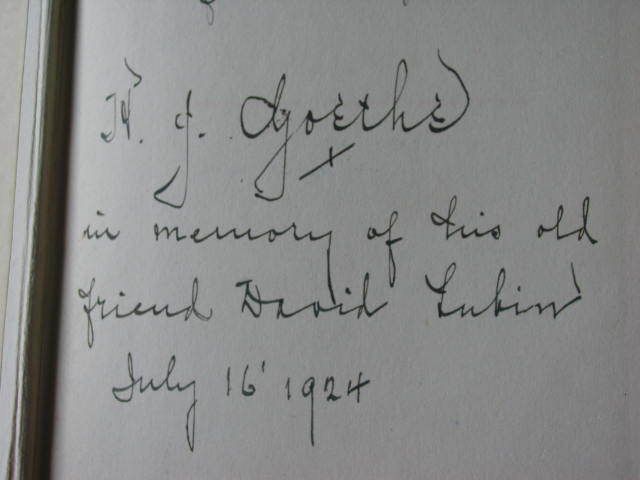 H. J. Goethe
in memory of his old
friend David Lubin
July 16' 1924